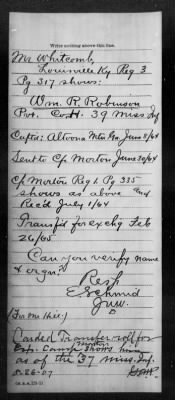 Write nothing above this line.
Mr Whitcomb,
Louisville Ky Reg 3
Pg 317 shows:
Wm. R. Robinson
Pvt. Co. H. 39 Miss Inf
Captd: Altoona Mtn Ga. June 8/64
Sent to Cp Morton June 30/64
Cp Morton Reg 1. Pg 335
shows as above and
Rec'd July 1/64
Transf'd for exchg Feb
26/65
Can you verify name
& orgn?
Resp
(For Mr )
Carded Transfer roll for
Camp Morton shows him
as of the 37 Miss. Inf.
8-26-07